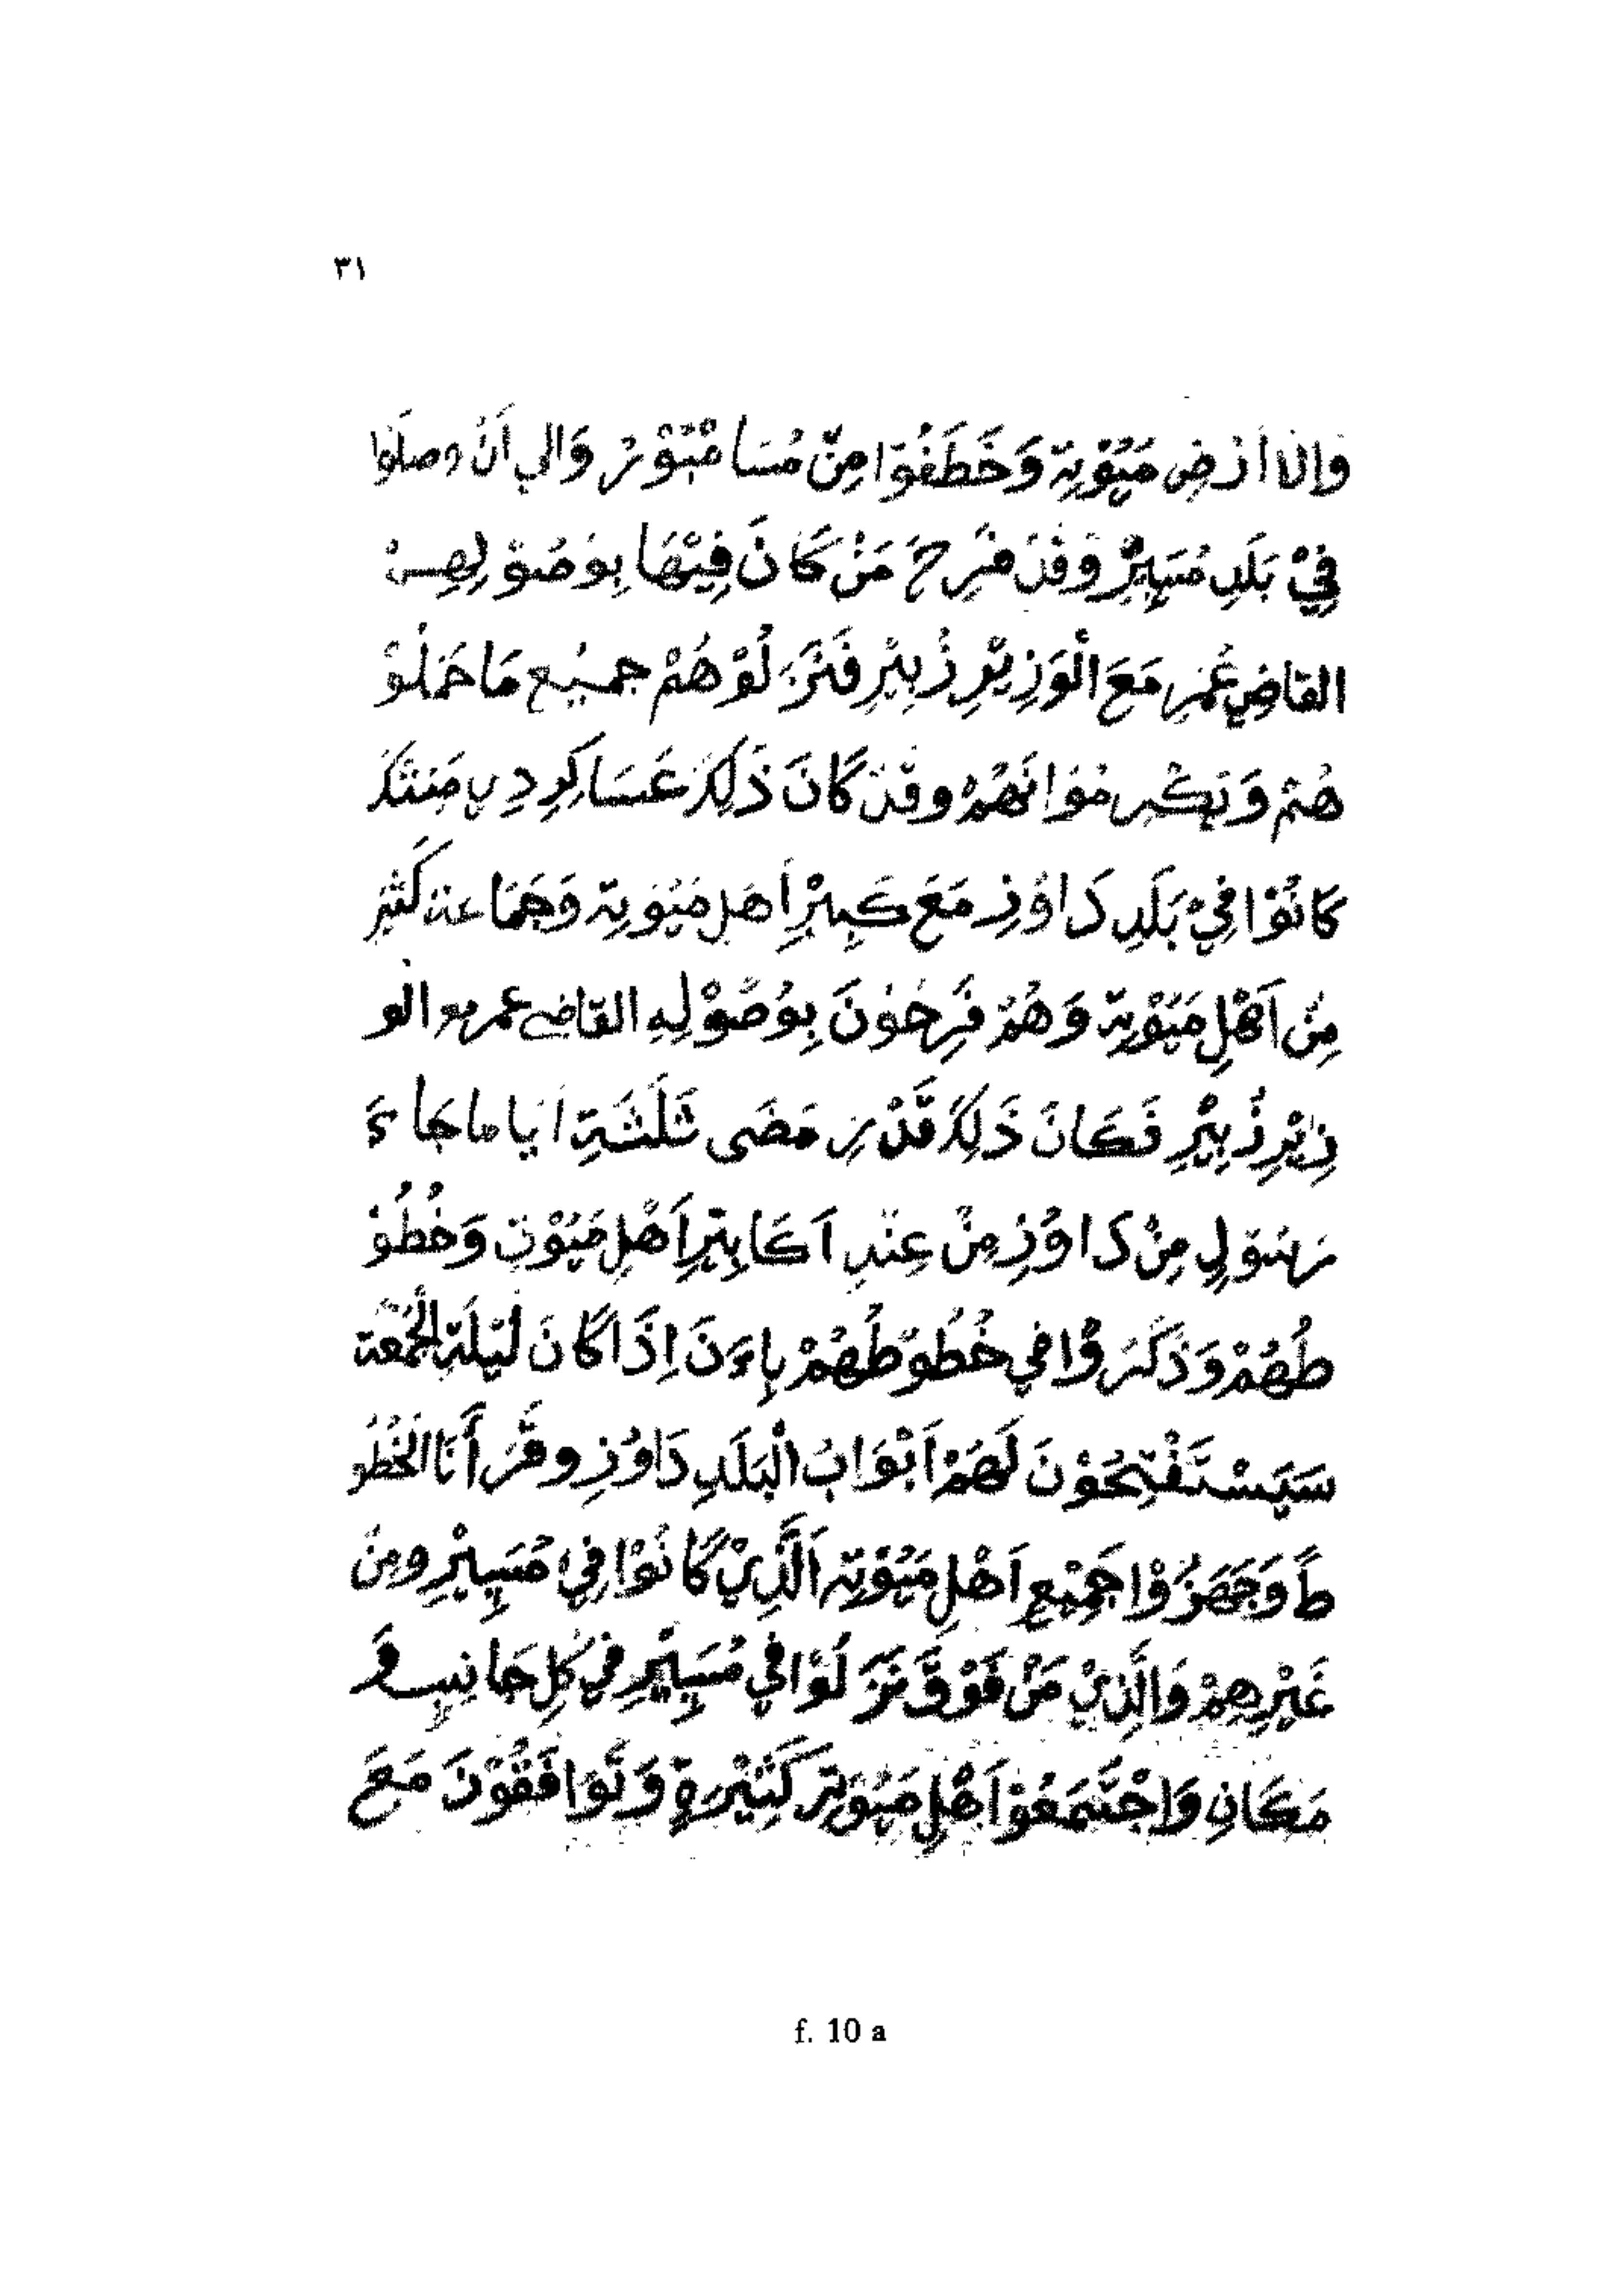 ٣١
وَإِلَا أَرْضِ مَيُوْبِة وَخَطَفُوْا مِنْ مُسَا مُبُوْرُ وَالي أَنْ وصلوا
فِيْ بَلَدِ مُسَبِيْرِ وَقَدْ فَرِحَ مَنْ كَانَ فِيْهَا بِوُصُوْلِهِمْ
القاضِي عُمَرِ مَعَ الْوَزِيْرِ زُبِيْرِ فَنَزَلُوْهُمْ جميع مَا حَمَلُوْ
هُمْ وَقَدْ كَانَ ذَلِكَ عَسَاكِر
كَانُوْا فِيْ بَلَدِ دَاوُزِ مَعَ كَبِيْرِ أَهْلِ مَيُوْبِة وَجَمَاعة كَثِيْر
مِنْ أَهْلِ مَيُوْبِة وَهُمْ فَرِحُوْنَ بِوُصُوْلِهِ القاضي عمر مع الو
زِيْرِ زُبِيْرِ فَكَانَ ذَلِكَ قَدْرِ مَضَى ثَلَثَةِ اَيَاما جَاءَ
رَسُوْلِي مِنْ دَاوُزِ مِنْ عِنْدِ اَكَابِيْرِ أَهْلِ مَيُوْبِة وَخُطُوْ
طُهُمْ وَذَكَرُوْا فِي خُطُوْطُهُمْ بِاءَنَ إِذَا كَانَ لَيْلَةِ الْجُمْعَة
سَيَسْتَفْتِحُوْنَ لَهُمْ اَبْوَابُ الْبَلَدِ دَاوُزِ وقَرَأَنَا الْخُطُو
طً وَجَهَزُوْا جَمِيْعِ أَهْلِ مَيُوْبِة اَلَّذِيْ كَانُوْا فِي مُسَبِيْرِ وَمِنْ
غَيْرِهِمْ وَالَّذِيْ مَنْ فَوْقَ نَزَلُوْا فِي مُسَبِيْرِ فِي كُلِ جَانِبِ وَ
مَكَانِ وَاجْتَمَعُوْا أَهْلِ مَيُوْبِة كَثِيْرَةٍ وَتَوَافَقُوْنَ مَعَ
f. 10 a